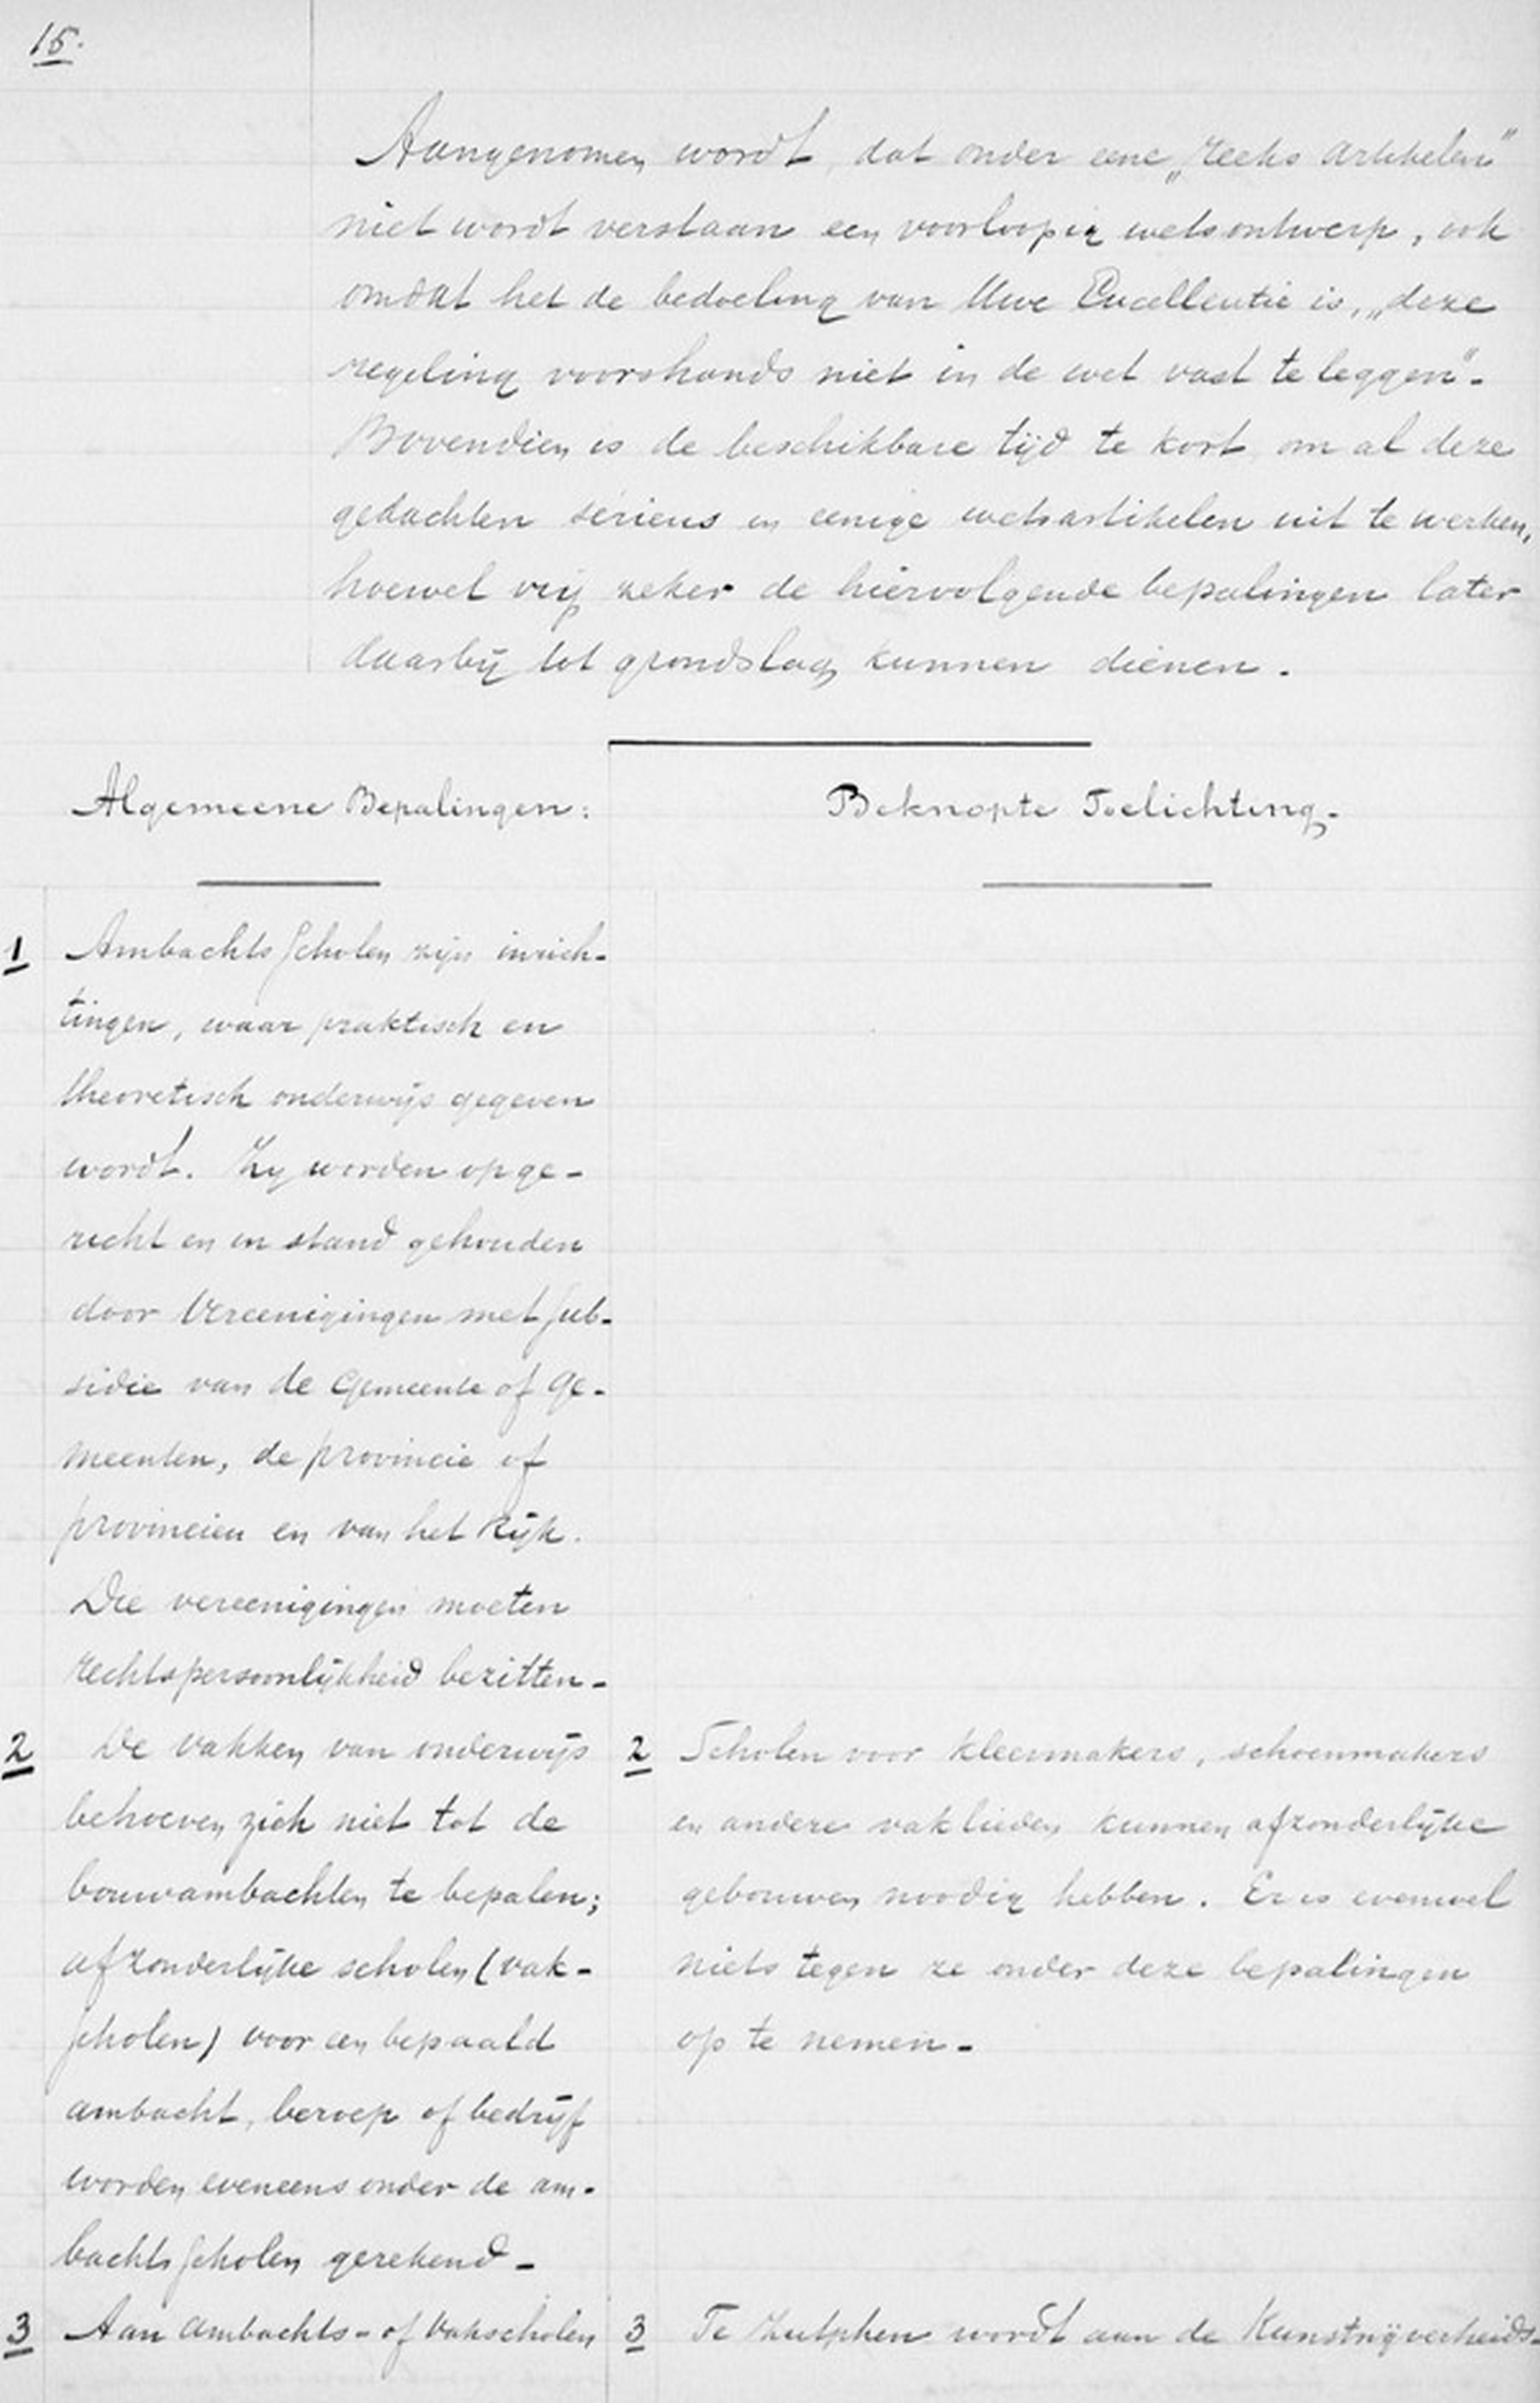 15.
Aangenomen wordt, dat onder eene „reeks artikelen"
niet wordt verstaan een voorloopig wetsontwerp, ook
omdat het de bedoeling van Uwe Excellentie is, „deze
regeling voorshands niet in de wet vast te leggen".
Bovendien is de beschikbare tijd te kort om al deze
gedachten serieus in eenige wetsartikelen uit te werken,
hoewel vrij zeker de hiervolgende bepalingen later
daarbij tot grondslag kunnen dienen.
Algemeene Bepalingen:
1 Ambachtsscholen zijn inrich-
tingen, waar praktisch en
theoretisch onderwijs gegeven
wordt. Zij worden opge-
richt en in stand gehouden
door Vereenigingen met sub-
sidie van de Gemeente of Ge-
meenten, de provincie of
provinciën en van het Rijk.
Die vereenigingen moeten
rechtspersoonlijkheid bezitten.
2 De vakken van onderwijs
behoeven zich niet tot de
bouwambachten te bepalen;
afzonderlijke scholen (vak-
scholen) voor een bepaald
ambacht, beroep of bedrijf
worden eveneens onder de am-
bachtsscholen gerekend.
3 Aan ambachts- of vakscholen
Beknopte Toelichting.
2 Scholen voor kleermakers, schoenmakers
en andere vaklieden kunnen afzonderlijke
gebouwen noodig hebben. Er is evenwel
niets tegen ze onder deze bepalingen
op te nemen.
3 Te Zutphen wordt aan de Kunstnijverheids-